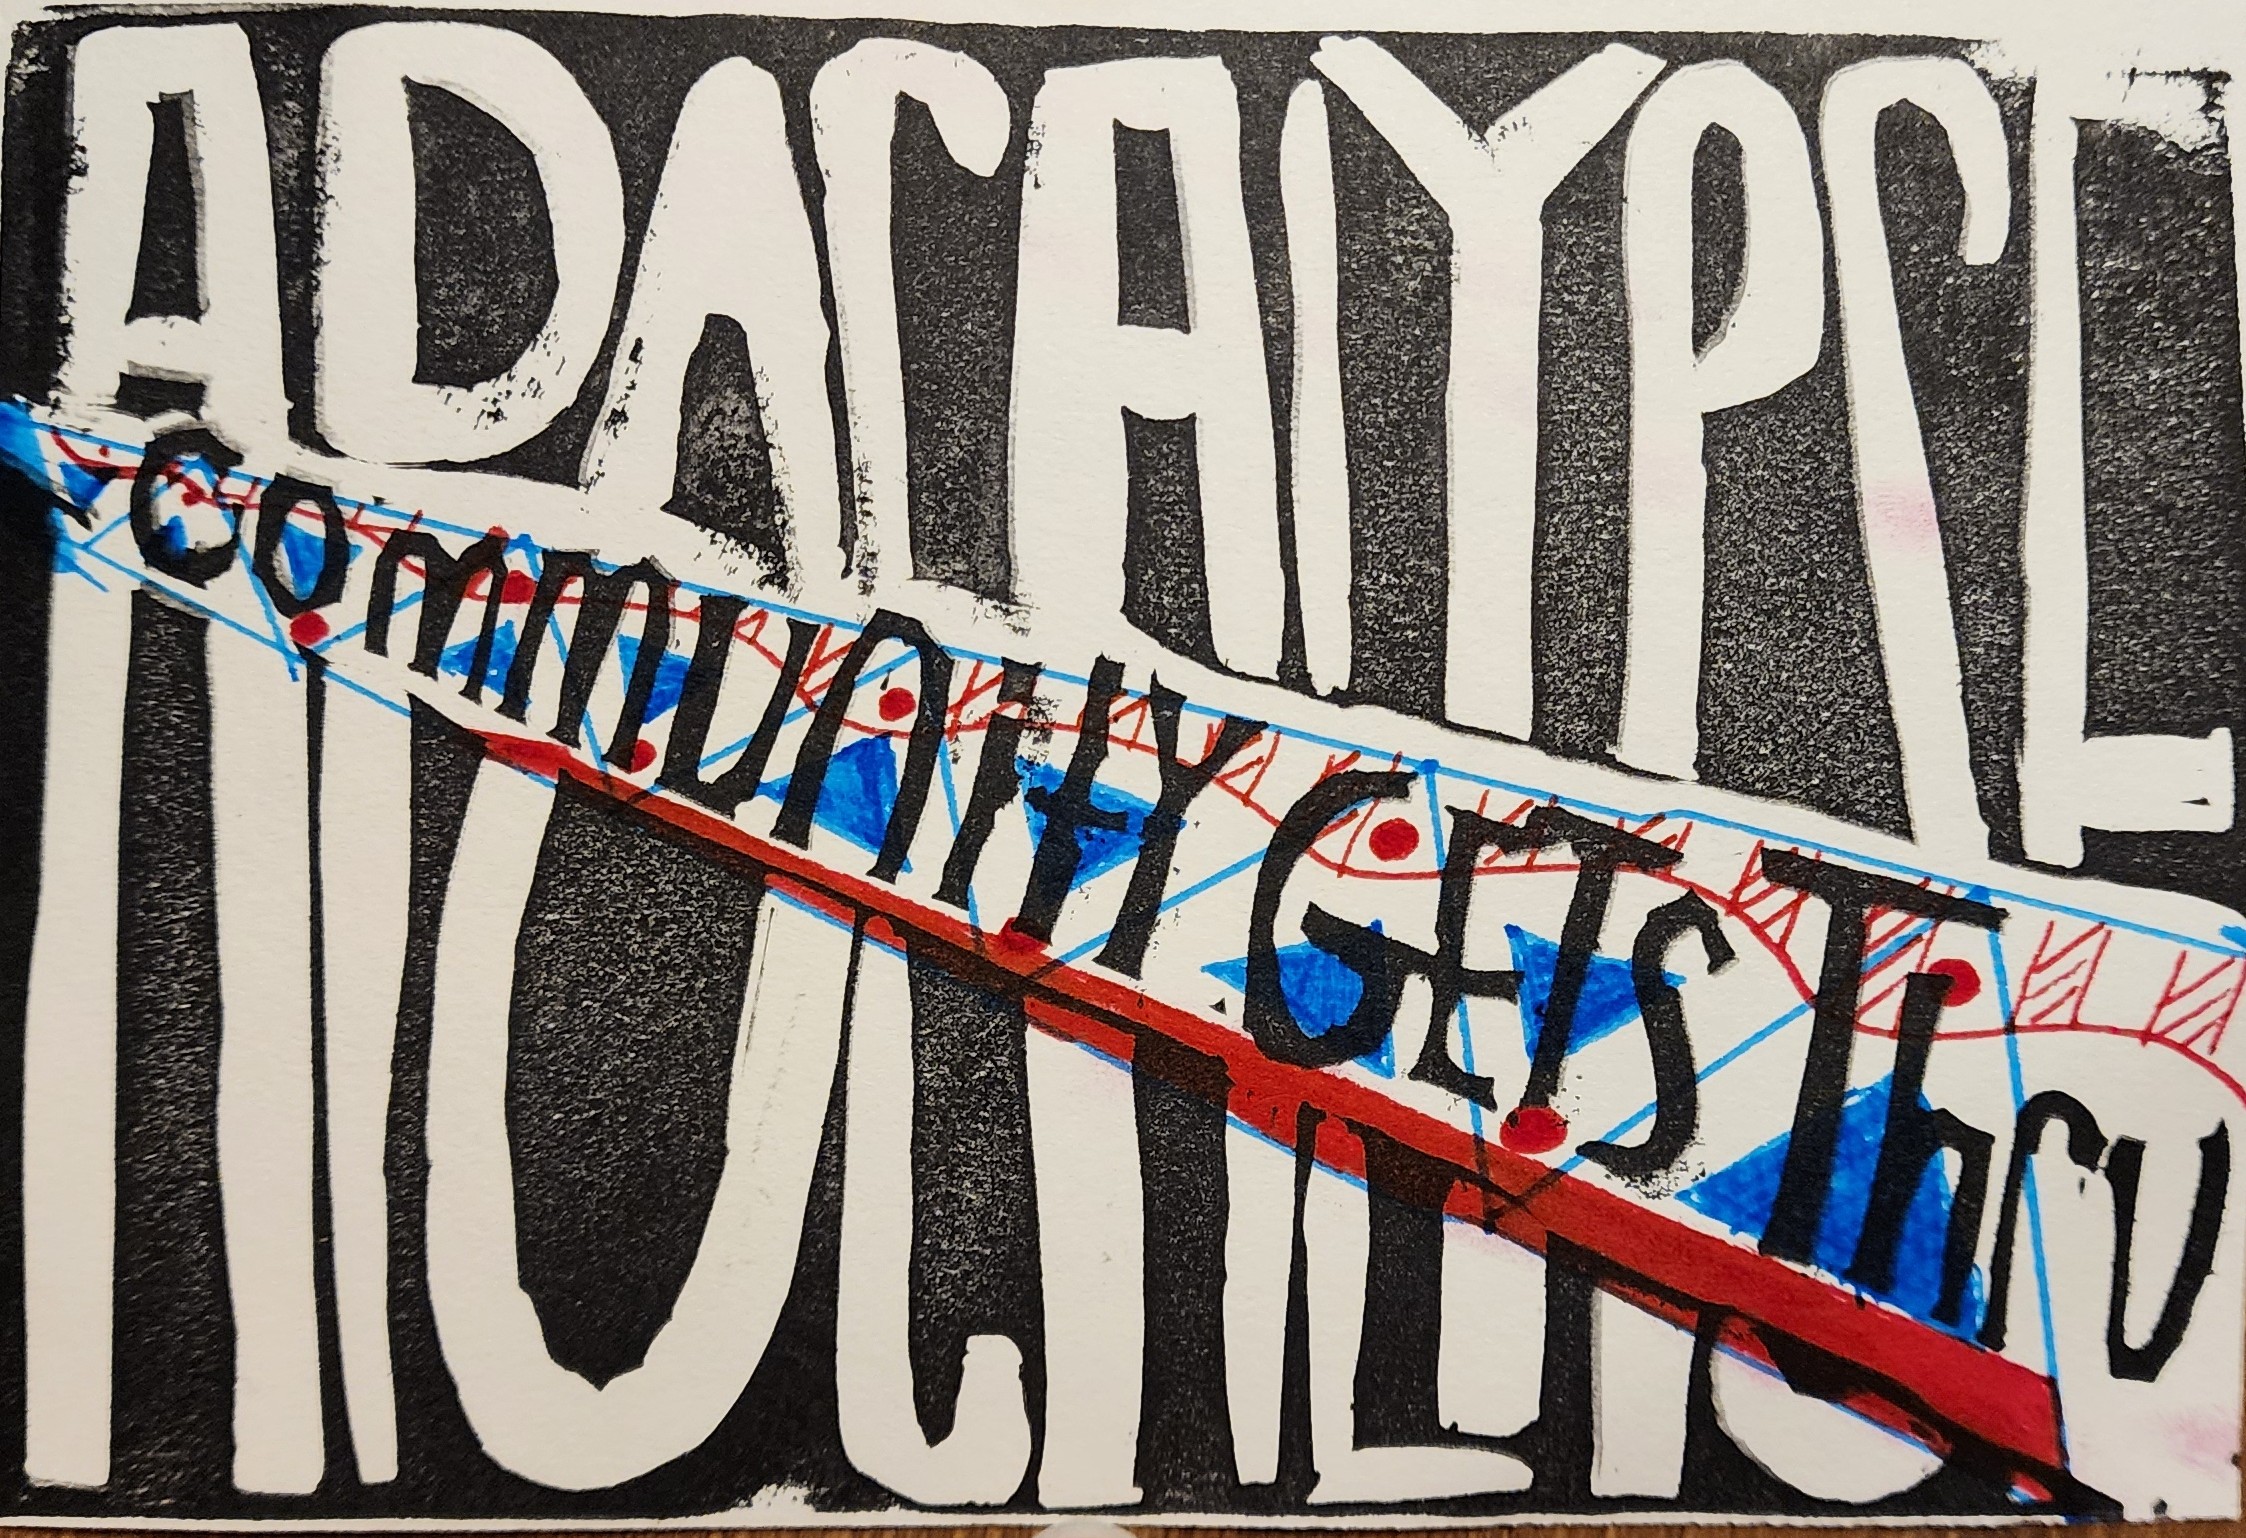 APOCALYPSE
COMMUNITY GETS Thru